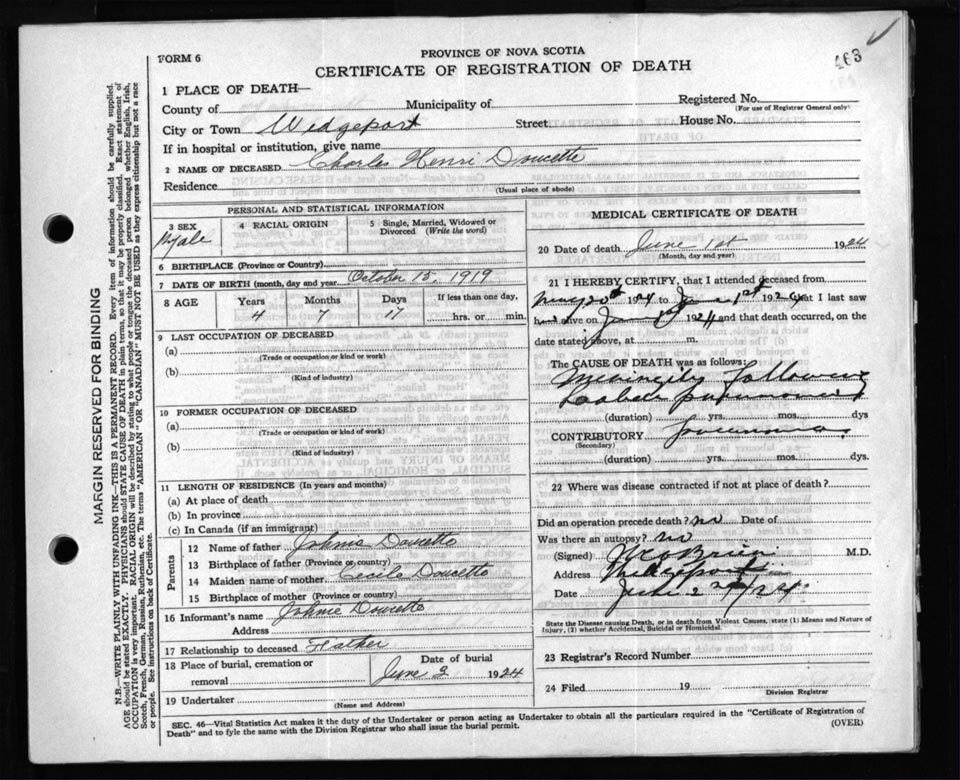 463
FORM 6
PROVINCE OF NOVA SCOTIA
CERTIFICATE OF REGISTRATION OF DEATH
1 PLACE OF DEATH—
County of
Municipality of
Registered No.
(For use of Registrar General only)
City or Town Wedgeport
Street
House No.
If in hospital or institution, give name
2 NAME OF DECEASED Charles Henri Doucette
Residence
(Usual place of abode)
PERSONAL AND STATISTICAL INFORMATION
3 SEX
Male
4 RACIAL ORIGIN
5 Single, Married, Widowed or Divorced (Write the word)
6 BIRTHPLACE (Province or Country)
7 DATE OF BIRTH (month, day and year) October 15, 1919
8 AGE
Years
Months
Days
If less than one day,
4
7
17
hrs. or min.
9 LAST OCCUPATION OF DECEASED
(a)
(Trade or occupation or kind or work)
(b)
(Kind of industry)
10 FORMER OCCUPATION OF DECEASED
(a)
(Trade or occupation or kind of work)
(b)
(Kind of industry)
11 LENGTH OF RESIDENCE (In years and months)
(a) At place of death
(b) In province
(c) In Canada (if an immigrant)
Parents
12 Name of father Johnie Doucette
13 Birthplace of father (Province or country)
14 Maiden name of mother Cecile Doucette
15 Birthplace of mother (Province or country)
16 Informant's name Johnie Doucette
Address
17 Relationship to deceased Father
18 Place of burial, cremation or removal
Date of burial
June 3 1924
19 Undertaker
(Name and Address)
MEDICAL CERTIFICATE OF DEATH
20 Date of death June 1st 1924
(Month, day and year)
21 I HEREBY CERTIFY, that I attended deceased from
May 20th 1924 to June 1st 1924 that I last saw
him alive on June 1st 1924 and that death occurred, on the
date stated above, at m.
The CAUSE OF DEATH was as follows:
Meningitis following
Lobar pneumonia
(duration) yrs. mos. dys
CONTRIBUTORY
(Secondary)
(duration) yrs. mos. dys.
22 Where was disease contracted if not at place of death?
Did an operation precede death? no Date of
Was there an autopsy? no
(Signed) O'Brien M.D.
Address Wedgeport
Date June 2nd 1924
State the Disease causing Death, or in death from Violent Causes, state (1) Means and Nature of
Injury, (2) whether Accidental, Suicidal or Homicidal.
23 Registrar's Record Number
24 Filed 19
Division Registrar
SEC. 46—Vital Statistics Act makes it the duty of the Undertaker or person acting as Undertaker to obtain all the particulars required in the "Certificate of Registration of
Death" and to fyle the same with the Division Registrar who shall issue the burial permit.
(OVER)
MARGIN RESERVED FOR BINDING
N.B.—WRITE PLAINLY WITH UNFADING INK—THIS IS A PERMANENT RECORD. Every item of information should be carefully supplied.
AGE should be stated EXACTLY. PHYSICIANS should STATE CAUSE OF DEATH in plain terms, so that it may be properly classified. Exact statement of
OCCUPATION is very important. RACIAL ORIGIN will be described by stating to what people or tongue the deceased person belonged whether English, Irish,
Scotch, French, German, Russian, Ruthenian, etc. The terms "AMERICAN" or "CANADIAN" MUST NOT BE USED as they express citizenship but not a race
or people. See instructions on back of Certificate.